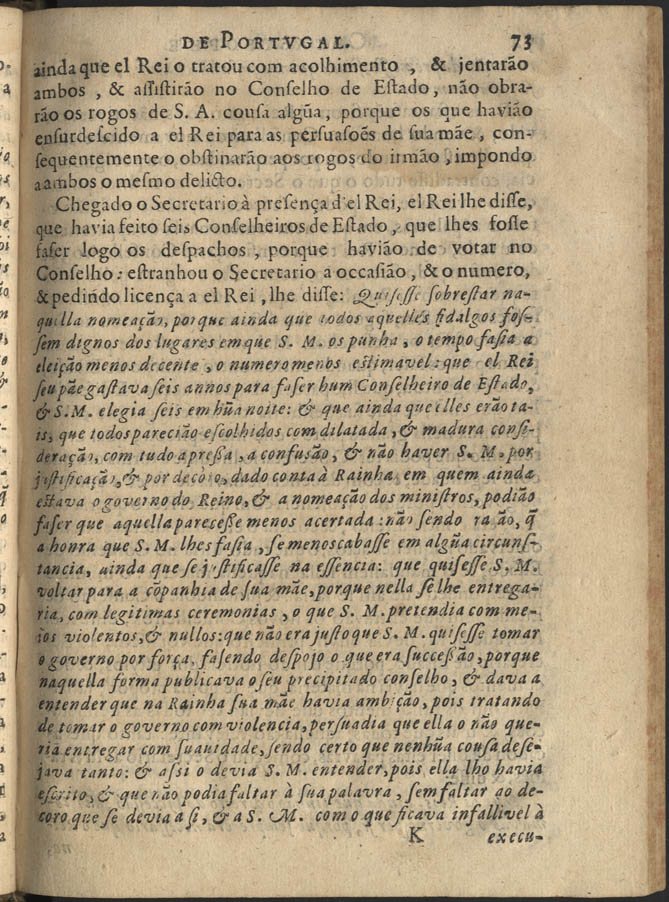 DE PORTVGAL. 73
ainda que el Rei o tratou com acolhimento , & jentarão
ambos , & aſſiſtirão no Conſelho de Eſtado, não obra-
rão os rogos de S. A. couſa algũa, porque os que havião
enſurdeſcido a el Rei para as perſuaſoẽs de ſua mãe , con-
ſequentemente o obſtinarão aos rogos do irmão , impondo
a ambos o meſmo delicto.
Chegado o Secretario à preſença d'el Rei, el Rei lhe diſſe,
que havia feito ſeis Conſelheiros de Eſtado , que lhes foſſe
faſer logo os deſpachos , porque havião de votar no
Conſelho : eſtranhou o Secretario a occaſião, & o numero,
& pedindo licença a el Rei , lhe diſſe: Quiſeſſe ſobreſtar na-
quella nomeação, porque ainda que todos aquelles fidalgos foſ-
ſem dignos dos lugares em que S. M. os punha , o tempo faſia a
eleição menos decente , o numero menos eſtimavel : que el Rei
ſeu pãe gaſtava ſeis annos para faſer hum Conſelheiro de Eſtado,
& S. M. elegia ſeis em hũa noite: & que ainda que elles erão ta-
is, que todos parecião eſcolhidos com dilatada , & madura conſi-
deração, com tudo a preſſa , a confuſão, & não haver S. M. por
juſtificação, & por decòro , dado conta à Rainha em quem ainda
eſtava o governo do Reino, & a nomeação dos miniſtros, podião
faſer que aquella pareceſſe menos acertada : não ſendo raſão, q̃
a honra que S. M. lhes faſia , ſe menoscabaſſe em algũa circunſ-
tancia, ainda que ſe juſtificaſſe na eſſencia: que quiſeſſe S. M.
voltar para a cõpanhia de ſua mãe, porque nella ſe lhe entrega-
ria, com legitimas ceremonias , o que S. M. pretendia com me-
ios violentos, & nullos: que não era juſto que S. M. quiſeſſe tomar
o governo por força, faſendo deſpojo o que era ſucceſſão, porque
naquella forma publicava o ſeu precipitado conſelho, & dava a
entender que na Rainha ſua mãe havia ambição, pois tratando
de tomar o governo com violencia, perſuadia que ella o não que-
ria entregar com ſuauidade, ſendo certo que nenhũa couſa deſe-
java tanto: & aſſi o devia S. M. entender, pois ella lho havia
eſcrito, & que não podia faltar à ſua palavra , ſem faltar ao de-
coro que ſe devia a ſi, & a S. M. com o que ficava infallivel à
K execu-